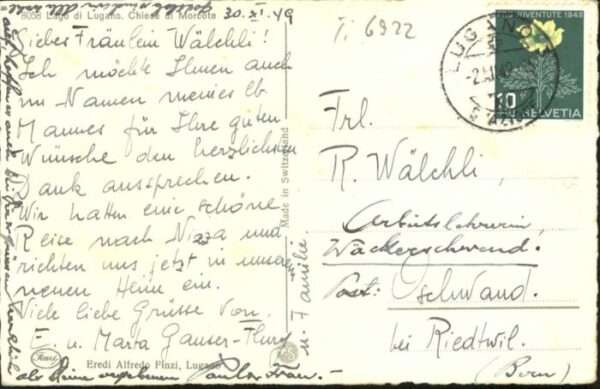 8058 Lago di Lugano. Chiesa di Morcote
30. XI. 49
Liebes Fräulein Wälchli!
Ich möchte Ihnen auch
im Namen meines lb.
Mannes für Ihre guten
Wünsche den herzlichsten
Dank aussprechen.
Wir hatten eine schöne
Reise nach Nizza und
richten uns jetzt in unserem
neuen Heim ein.
Viele liebe Grüsse von
E. u. Marta Ganser-
u. Familie
Eredi Alfredo Finzi, Lugano
Made in Switzerland
Ti 6922
PRO JUVENTUTE 1948
LUGANO
10
HELVETIA
Frl.
R. Wälchli,
Arbeitslehrerin,
Wäckerschwend.
Post: Oschwand.
bei Riedtwil.
(Bern)